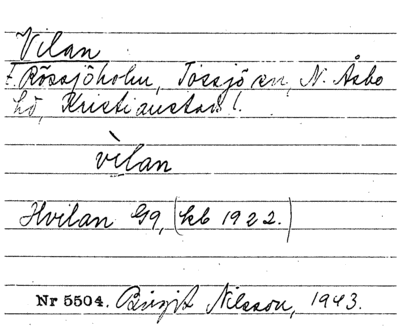 Vilan
f. Rössjöholm, Tossjö sn, N. Åsbo
hd, Kristianstad l.
vìlan
Hvilan G9, (kb 1922.)
Nr 5504. Birgit Nilsson, 1943.